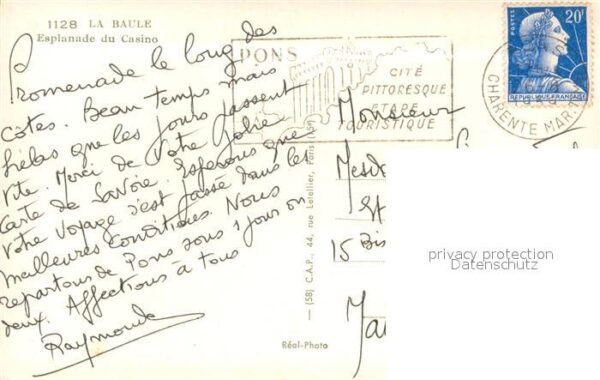 1128 LA BAULE
Esplanade du Casino
Promenade le long des
côtes. Beau temps mais
hélas que les jours passent
vite. Merci de votre jolie
carte de Savoie. Espérons que
votre voyage s'est passé dans les
meilleures conditions. Nous
repartons de Pons sous 1 jour ou
deux. Affections à tous
Raymonde
PONS
CITÉ
PITTORESQUE
ETAPE
TOURISTIQUE
POSTES
20F
REPUBLIQUE FRANÇAISE
CHARENTE MAR.
Monsieur
15 Bis
(58) C.A.P., 44, rue Letellier, Paris (15e)
Réal-Photo
privacy protection
Datenschutz